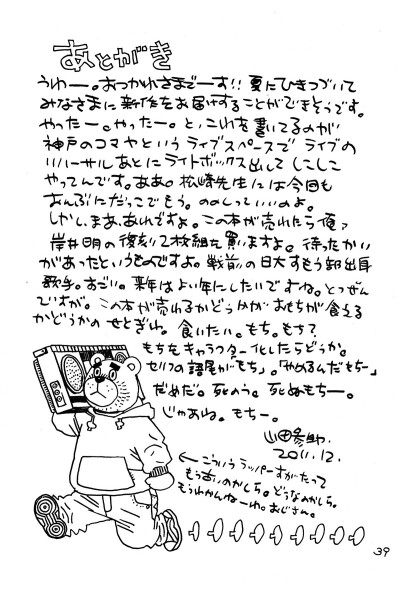 あとがき
うわー。おつかれさまでーす!! 夏にひきつづいて
みなさまに新作をお届けすることができそうです。
やったー。やったー。と、これを書いてるのが
神戸のコマヤというライブスペースでライブの
リハーサルあとにライトボックス出してしこしこ
やってんです。ああ。松崎先生には今回も
おんぶにだっこでもう。ののしっていいのよ。
しかし、まあ、あれですよ。この本が売れたら俺ァ
岸井明の復刻2枚組を買いますよ。待ったかい
があったというものですよ。戦前の日大すもう部出身
歌手。すごい。来年はよい年にしたいですね。とつぜん
ですが。この本が売れるかどうかがおもちが食える
かどうかのせとぎわ。食いたい。もち。もち?
もちをキャラクター化したらどうか。
セリフの語尾が「もち」。「やめるんだもちー」
だめだ。死のう。死ぬもちー。
じゃあね。もちー。
山田参助
2011.12.
←こういうラッパーすがたって
もう古いのかしら。どうなのかしら。
もうわかんねーわ。おじさん。
39